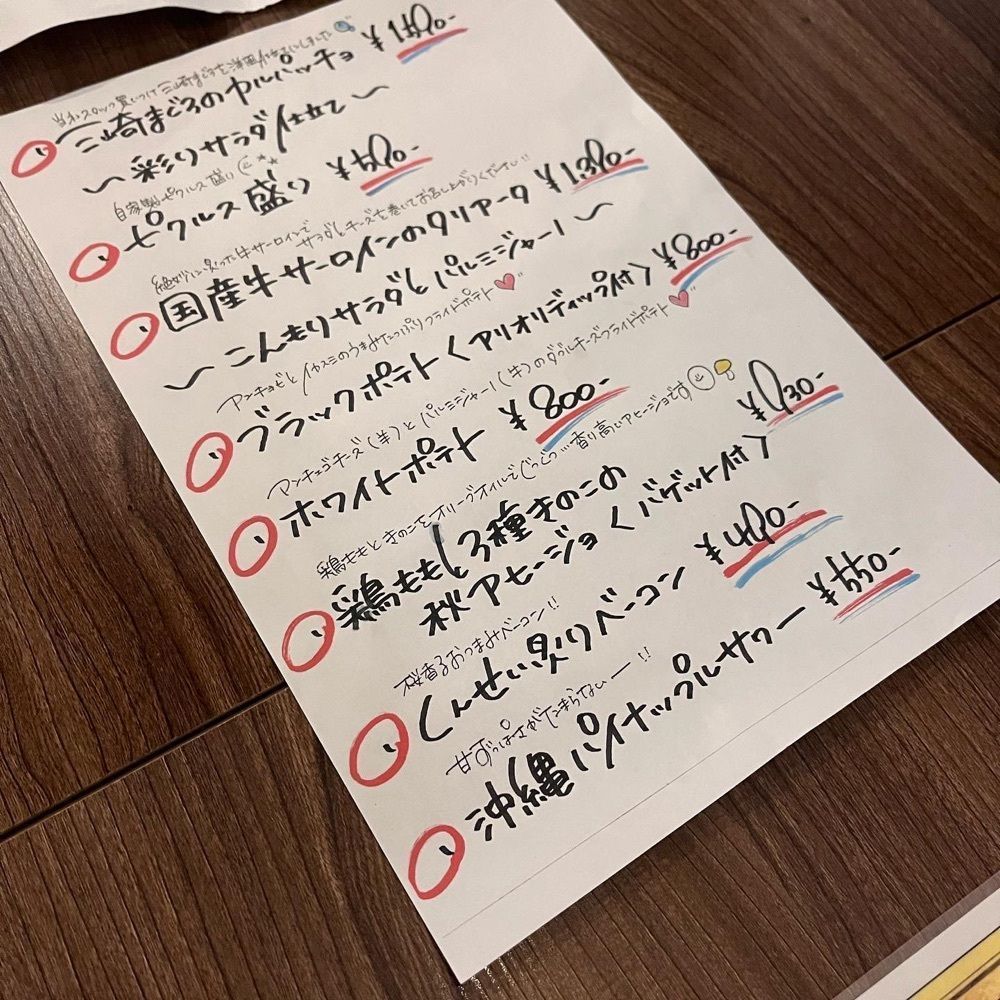 三崎まぐろのカルパッチョ ¥1180-
〜彩りサラダ仕立て〜
自家製ピクルス盛り
ピクルス盛り ¥580-
サラダとチーズを巻いてお召し上がりください!!
国産牛サーロインのタリアータ ¥1380-
〜こんもりサラダとパルミジャーノ〜
アンチョビとイカスミのうまみたっぷりフライドポテト
ブラックポテト〈アリオリディップ付〉 ¥800-
マンチェゴチーズ(羊)とパルミジャーノ(牛)のダブルチーズフライドポテト
ホワイトポテト ¥800-
鶏ももときのこをオリーブオイルでじっくり…香り高いアヒージョです
鶏ももと3種きのこの
秋アヒージョ〈バゲット付〉
桜香るおつまみベーコン!!
くんせい炙りベーコン ¥480-
甘ずっぱさがたまらないー!!
沖縄パイナップルサワー ¥550-